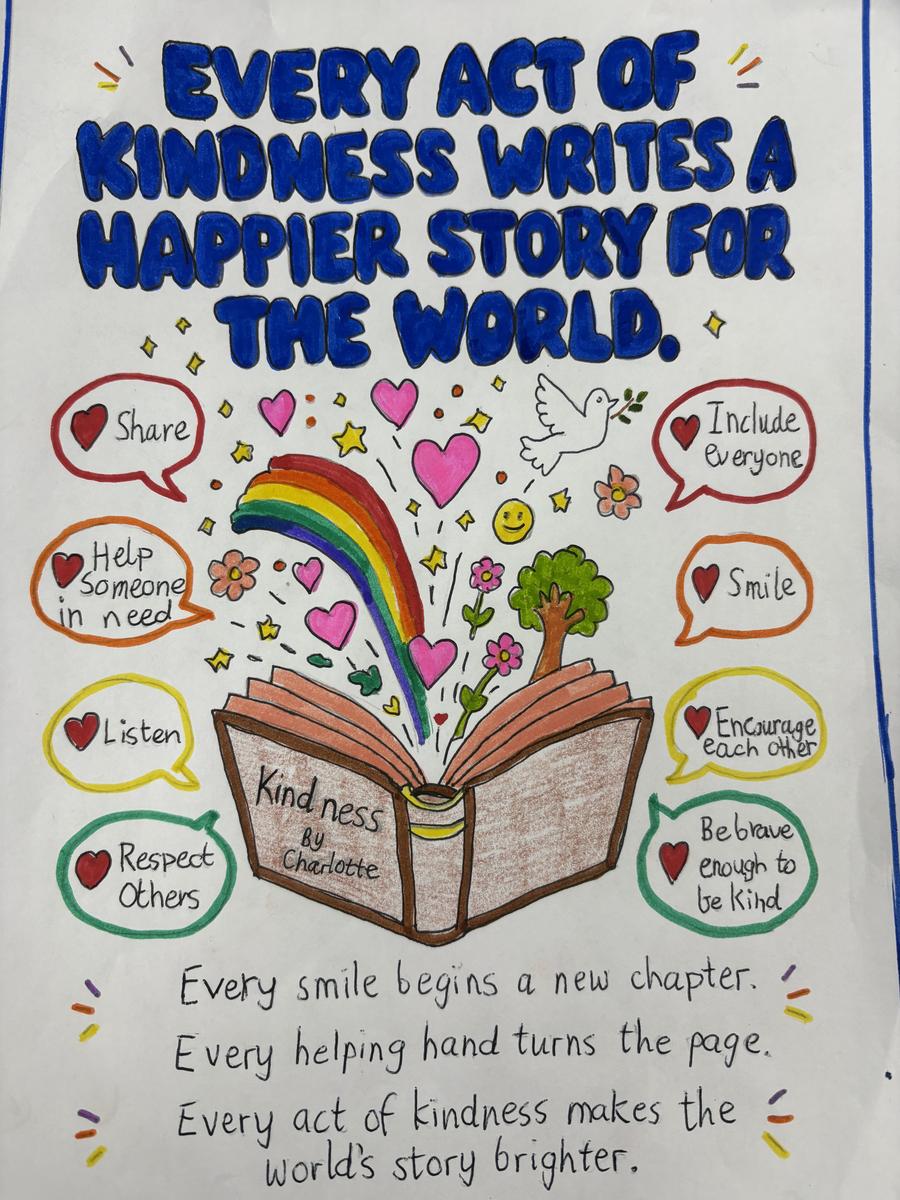 EVERY ACT OF
KINDNESS WRITES A
HAPPIER STORY FOR
THE WORLD.
Share
Include
everyone
Help
Someone
in need
Smile
Listen
Encourage
each other
Respect
Others
Be brave
enough to
be kind
Kindness
By
Charlotte
Every smile begins a new chapter.
Every helping hand turns the page.
Every act of kindness makes the
world's story brighter.